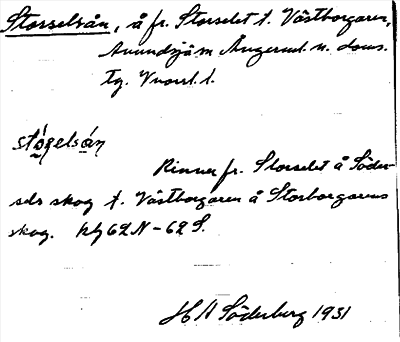 Storselsån, å fr. Storselet t. Västborgaren,
Anundsjö sn Ångermanl. n. doms.
Tg.
stórselsán
Rinner fr. Storselet å Söder-
sels skog t. Västborgaren å Storborgarens
skog. Kbl 62N-62S.
H A Söderberg 1931